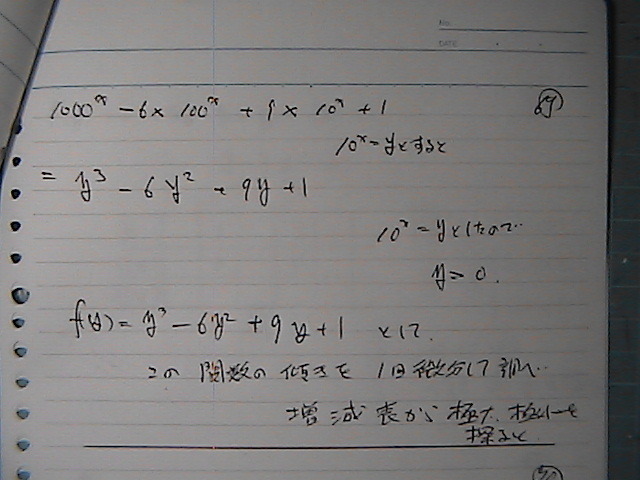 No.
DATE
69
1000^x - 6 × 100^x + 9 × 10^x + 1
10^x = y とすると
= y³ - 6y² + 9y + 1
10^x = y としたので…
y > 0.
f(y) = y³ - 6y² + 9y + 1 として.
この関数の傾きを 1回微分して調べ…
増減表から 極大、極小を
探ると
70